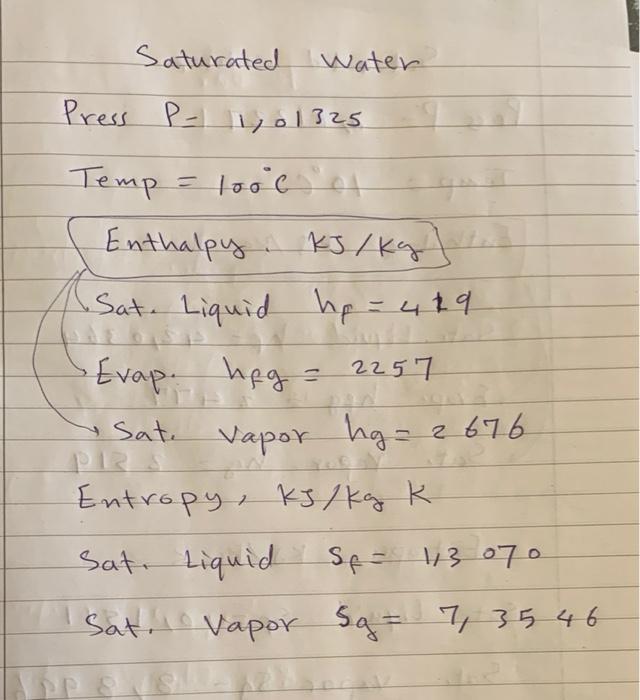 Saturated Water
Press P= 1,01325
Temp = 100°C
Enthalpy. KJ/Kg
Sat. Liquid hf = 419
Evap. hfg = 2257
Sat. Vapor hg = 2676
Entropy, KJ/Kg K
Sat. Liquid Sf = 1,3070
Sat. Vapor Sg = 7,3546